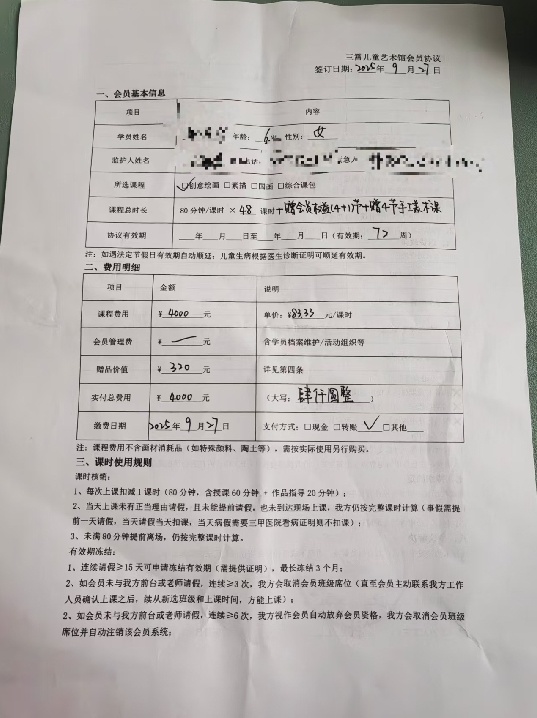 三富儿童艺术馆会员协议
签订日期：2025年 9 月 27 日
一、会员基本信息
项目 内容
学员姓名 年龄： 6 性别： 女
监护人姓名
所选课程 ☑创意绘画 □素描 □国画 □综合课包
课程总时长 80分钟/课时 × 48 课时+赠会员权益(4+1)节+赠4节手工美术课
协议有效期 ___年___月___日至___年___月___日（有效期： 72 周）
注：如遇法定节假日有效期自动顺延；儿童生病根据医生诊断证明可顺延有效期。
二、费用明细
项目 金额 说明
课程费用 ¥ 4000 元 单价：¥83.33 元/课时
会员管理费 ¥ — 元 含学员档案维护/活动组织等
赠品价值 ¥ 320 元 详见第四条
实付总费用 ¥ 4000 元 （大写： 肆仟圆整 ）
缴费日期 2025年 9 月 27 日 支付方式：□现金 □转账 ✓ □其他
注：课程费用不含画材消耗品（如特殊颜料、陶土等），需按实际使用另行购买。
三、课时使用规则
课时核销：
1、每次上课扣减1课时（80分钟，含授课60分钟 + 作品指导20分钟）；
2、当天上课未有正当理由请假，且未能提前请假，也未到达现场上课，我方仍按完整课时计算（事假需提
前一天请假，当天请假当天扣课，当天病假需要三甲医院看病证明则不扣课）；
3、未满80分钟提前离场，仍按完整课时计算。
有效期冻结：
1、连续请假≥15天可申请冻结有效期（需提供证明），最长冻结3个月；
2、如会员未与我方前台或老师请假，连续≥3次，我方会取消会员班级席位（直至会员主动联系我方工作
人员确认上课之后，续从新选班级和上课时间，方能上课）；
2、如会员未与我方前台或老师请假，连续≥6次，我方视作会员自动放弃会员资格，我方会取消会员班级
席位并自动注销该会员系统；